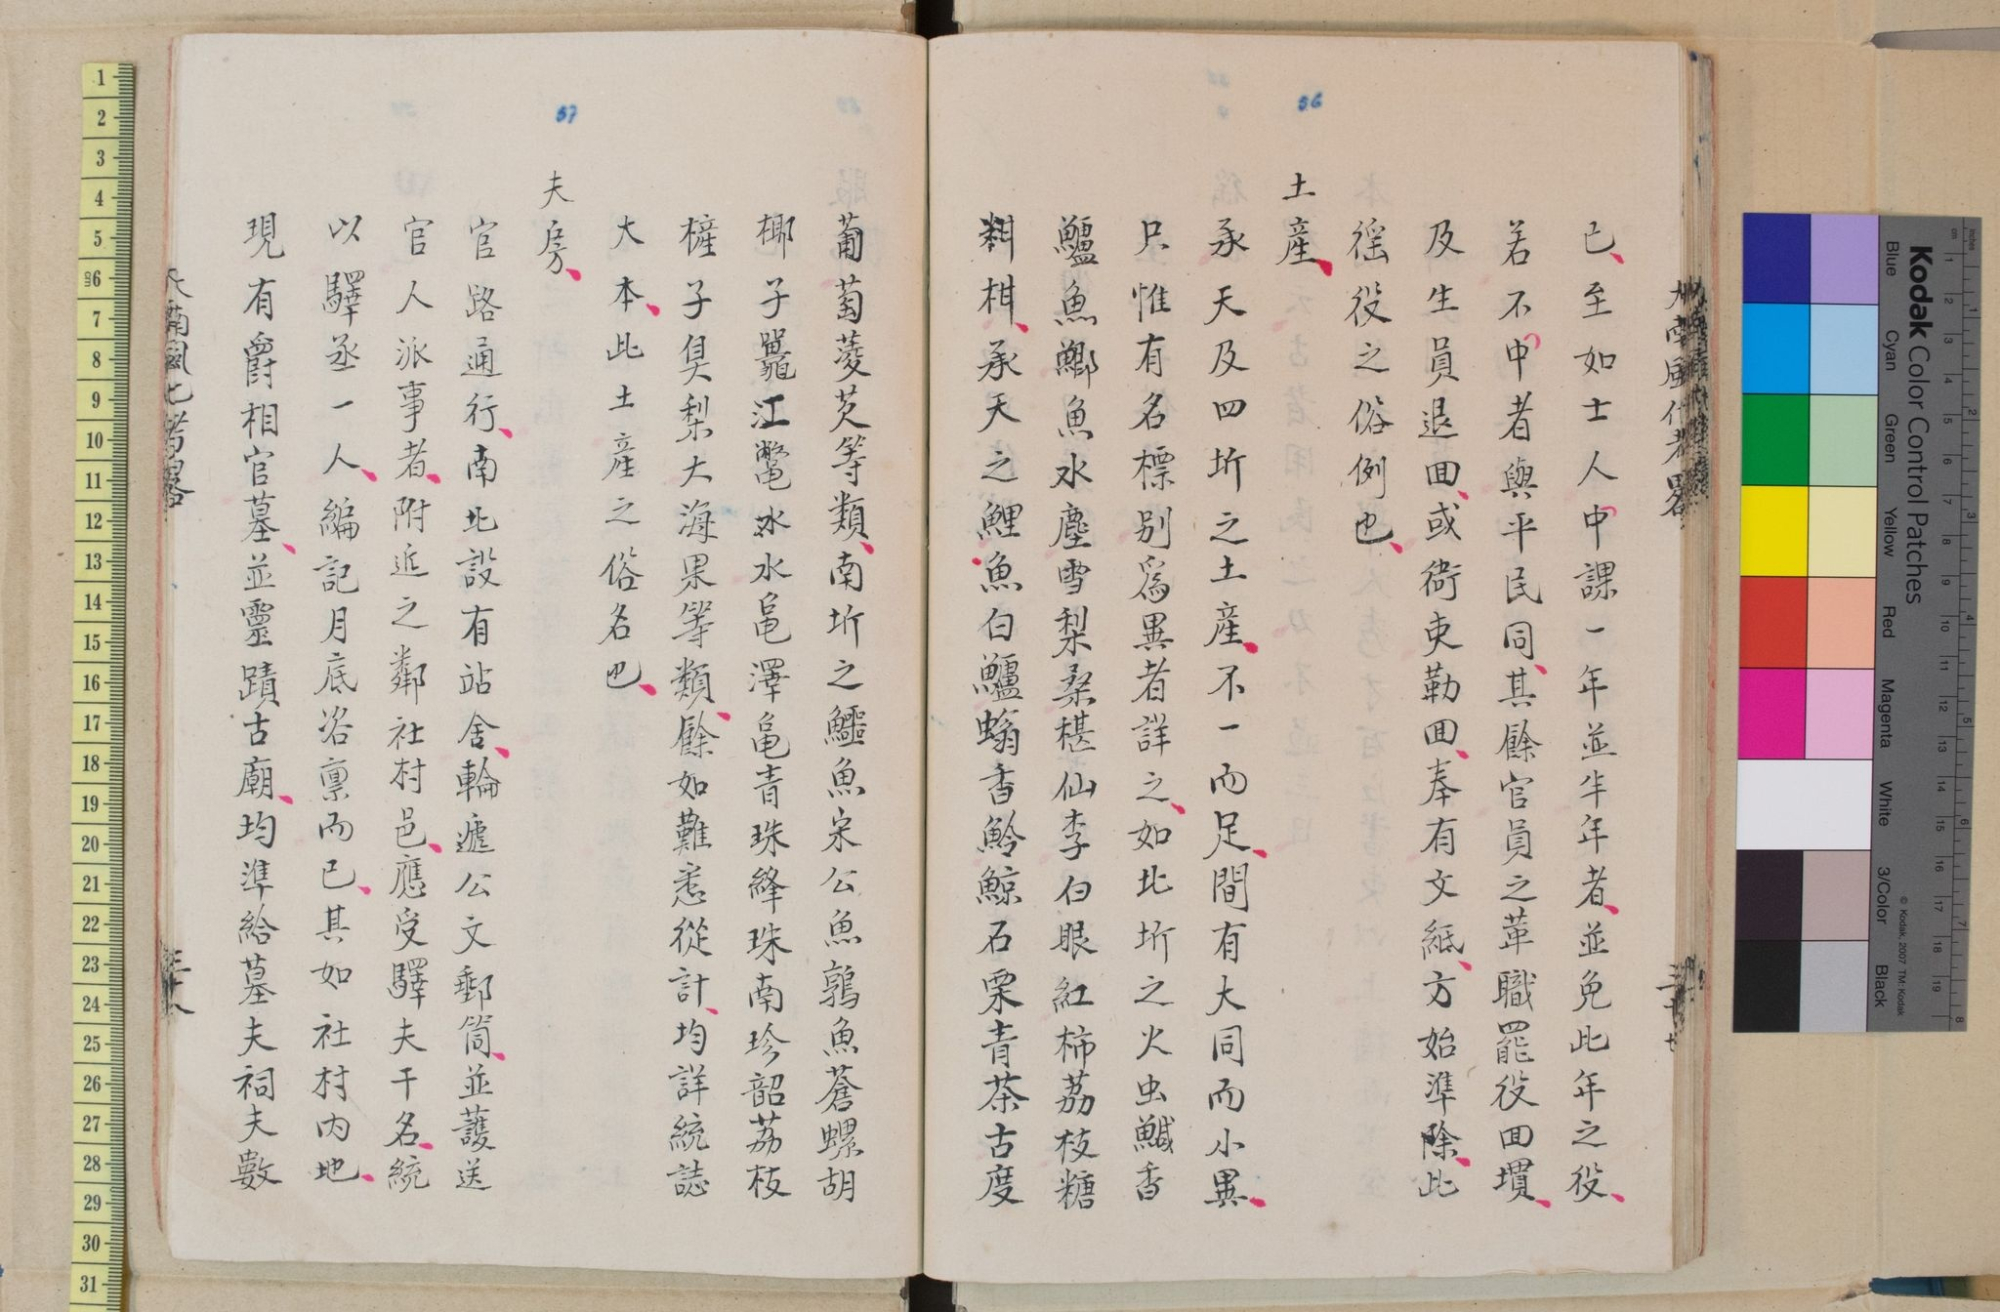 已至如士人中課一年並半年者並免此年之役
若不中者與平民同其餘官員之革職罷役回壙
及生員退回或衙吏勒回奉有文紙方始準除此
徭役之俗例也
土產
承天及四圻之土產不一而足間有大同而小異
只惟有名標別爲異者詳之如北圻之火虫鰔香
鱸魚鰤魚水塵雪梨桑椹仙李白眼紅柿荔枝糖
柑承天之鯉魚白鱸螉香魿鯨石栗青茶古度
葡萄菱芡等類南圻之鱷魚宋公魚鶉魚蒼螺胡
椰子鼉江鼈水黽澤黽青珠絳珠南珍韶荔枝
樦子㚖梨大海果等類餘如難悉從計均詳統誌
大本此土產之俗名也
夫房
官路通行南北設有站舍輪遞公文郵筒並護送
官人派事者附近之鄰社村邑應受驛夫干名統
以驛丞一人編記月底咨禀而已其如社村內地
現有爵相官墓並靈蹟古廟均準給墓夫祠夫數
56
57